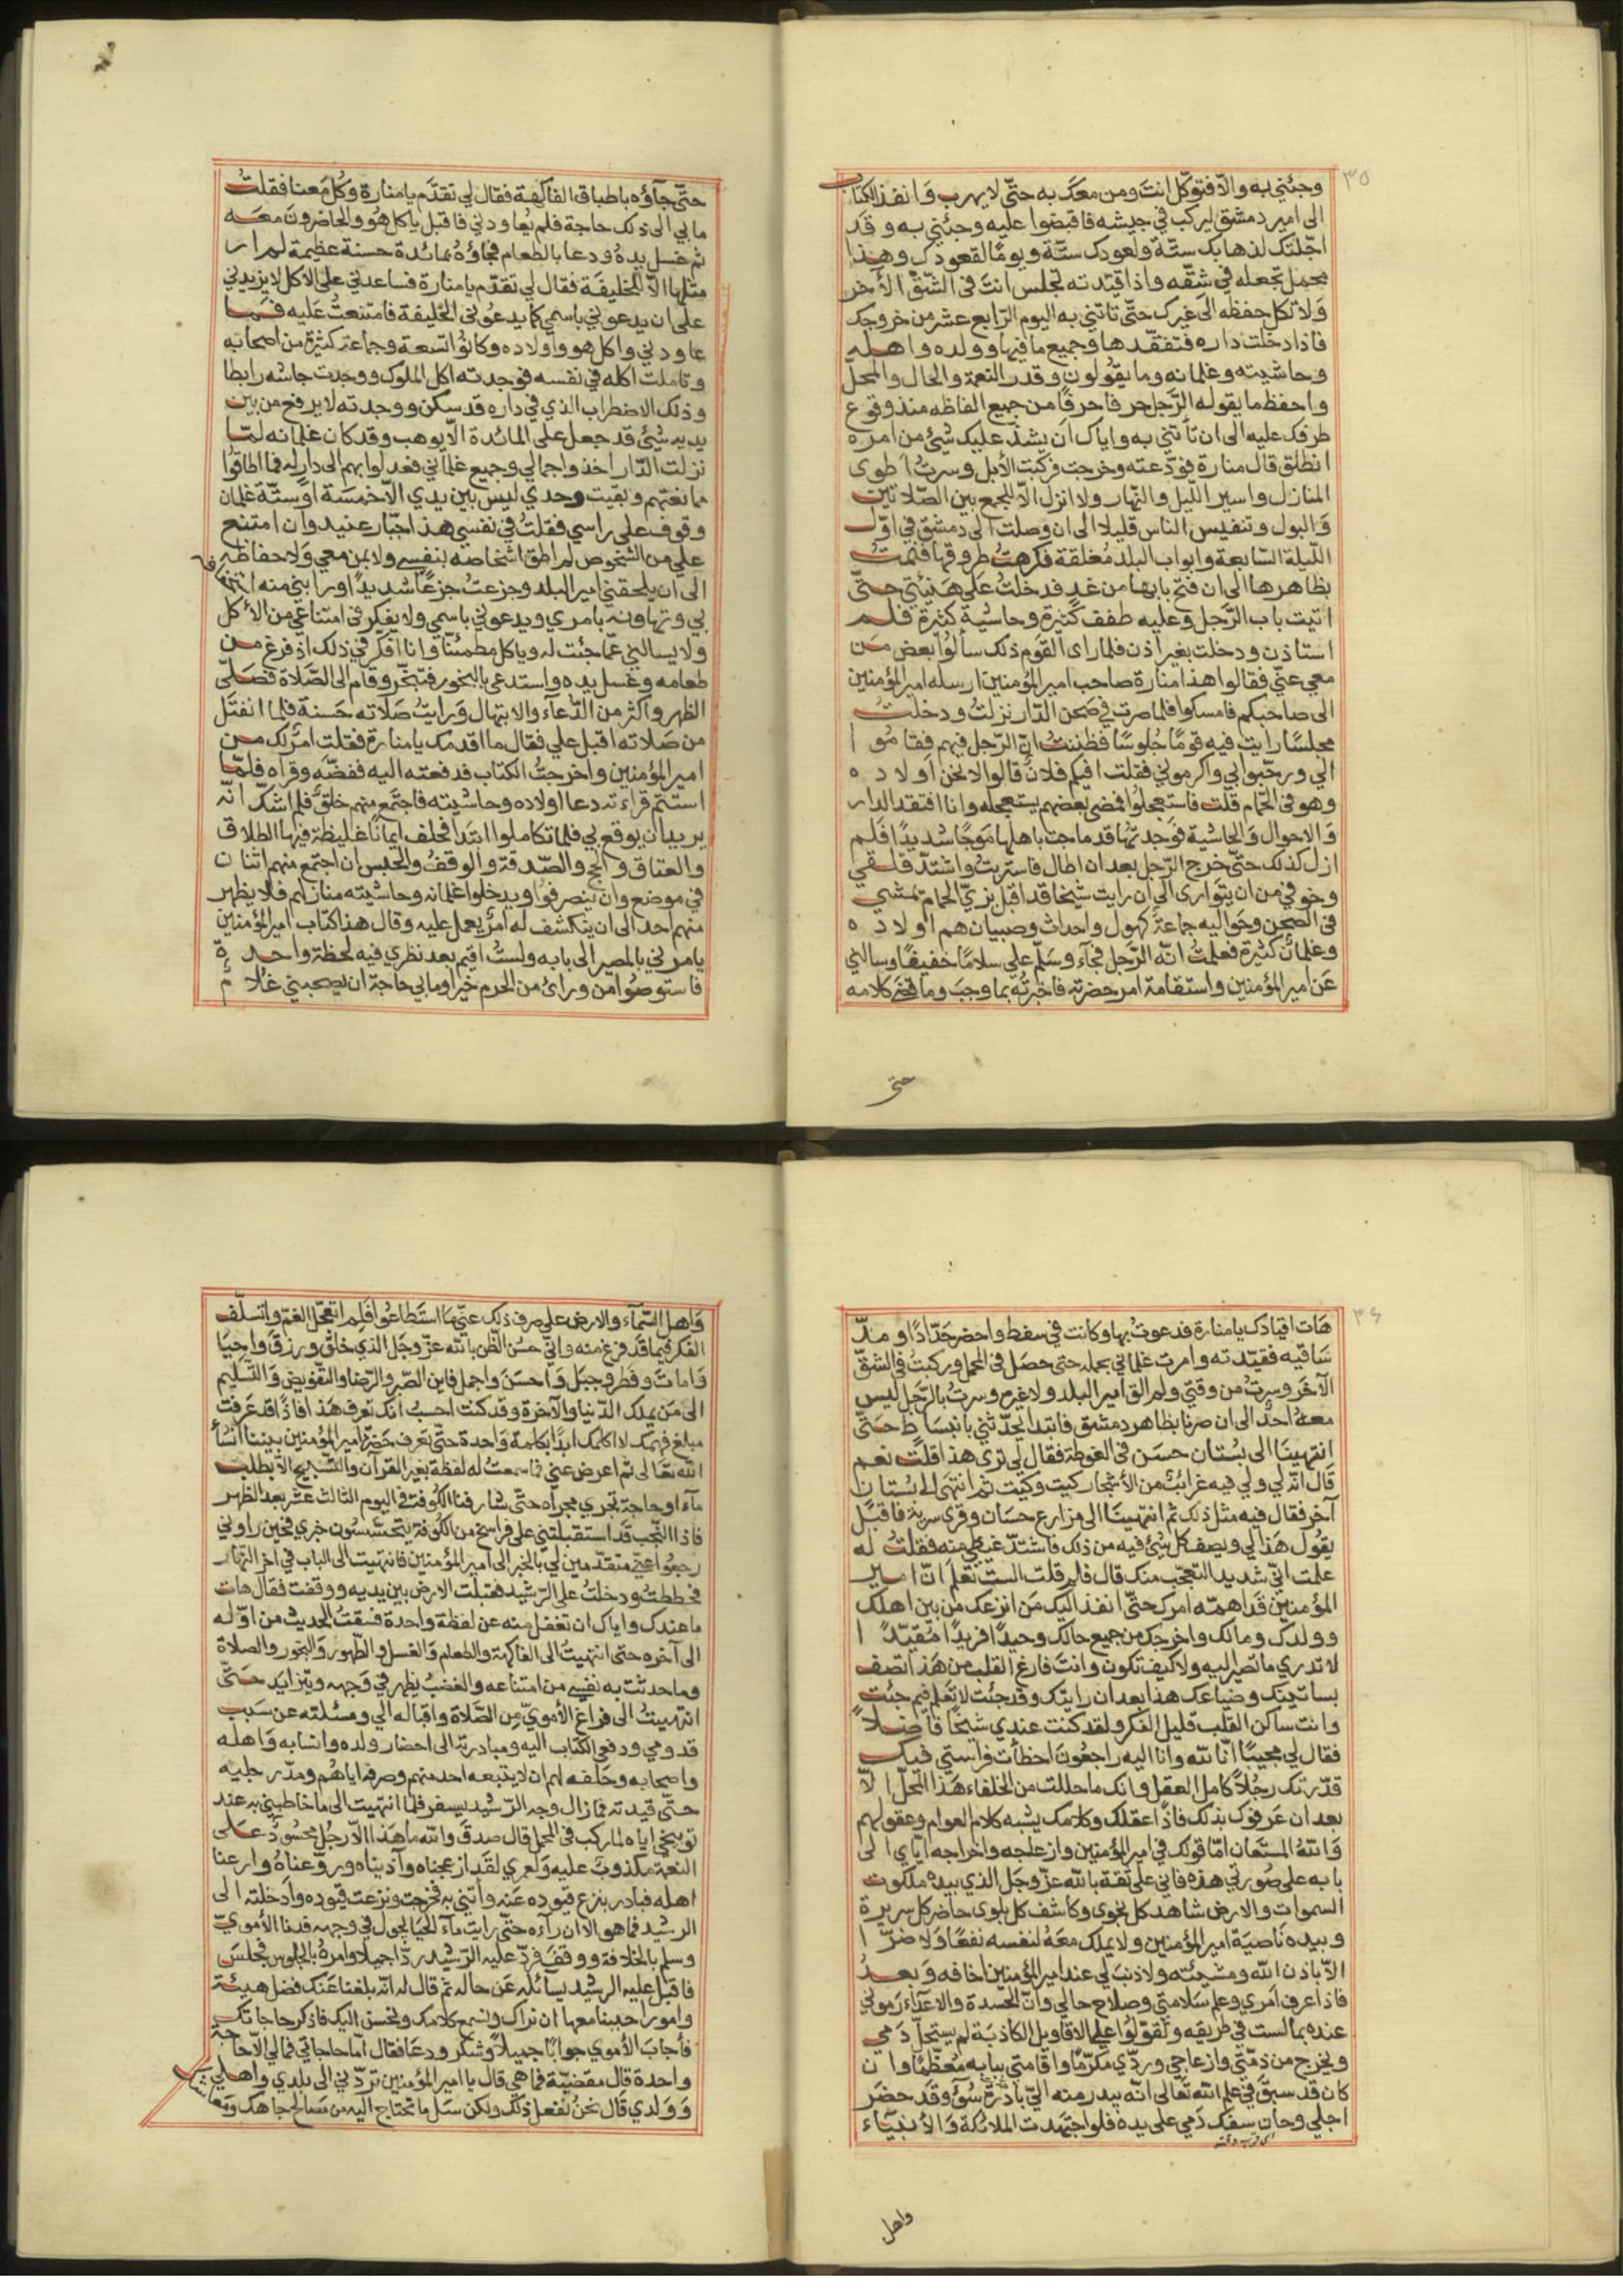 ٣٥
وجئني به والا فتوكل انت ومن معك به حتى لا يهرب وانفذ الكتاب
الى امير دمشق ليركب في جيشه فاقبضوا عليه وجئني به وقد
اجلتك لذهابك ستة ولعودك ستة ويوما لقعودك وهذا
محمل تجعله في شقه واذا قيدته تجلس انت في الشق الآخر
ولا تكل حفظه الى غيرك حتى تاتني به اليوم الرابع عشر من خروجك
فاذا دخلت داره فتفقدها وجميع ما فيها وولده واهله
وحاشيته وغلمانه وما يقولون وقدر النعمة والحال والمحل
واحفظ ما يقوله الرجل حرفا حرفا من جميع الفاظه منذ وقوع
طرفك عليه الى ان تأتني به واياك ان يشذ عليك شئ من امره
انطلق قال منارة فودعته وخرجت فركبت الأبل وسرت اطوى
المنازل واسير الليل والنهار ولا انزل الا للجمع بين الصلاتين
والبول وتنفيس الناس قليلا الى ان وصلت الى دمشق في اول
الليلة السابعة وابواب البلد مغلقة فكرهت طروقها فنمت
بظاهرها الى ان فتح بابها من غد فدخلت على هيئتي حتى
اتيت باب الرجل وعليه صفف كثيرة وحاشية كثيرة فلم
استاذن ودخلت بغير اذن فلما راى القوم ذلك سألوا بعض من
معي عني فقالوا هذا منارة صاحب امير المؤمنين ارسله امير المؤمنين
الى صاحبكم فامسكوا فلما صرت في صحن الدار نزلت ودخلت
مجلسا رايت فيه قوما جلوسا فظننت ان الرجل فيهم فقاموا
الي ورحبوا بي واكرموني فقلت افيكم فلان قالوا لا نحن اولاده
وهو في الحمام قلت فاستعجلوا فمضى بعضهم يستعجله وانا افتقد الدار
والاحوال والحاشية فوجدتها قد ماجت باهلها موجا شديدا فلم
ازل كذلك حتى خرج الرجل بعد ان اطال فاستربت واشتد قلقي
وخوفي من ان يتوارى الى ان رايت شيخا قد اقبل بزي الحمام تمشى
في الصحن وحواليه جماعة كهول واحداث وصبيان هم اولاده
وغلمان كثيرة فعلمت انه الرجل فجآء وسلم علي سلاما خفيفا وسالني
عن امير المؤمنين واستقامة امر حضرته فاخبرته بما وجب وما كلامه
حتى
حتى جآؤه باطباق الفاكهة فقال لي تقدم يا منارة وكل معنا فقلت
ما بي الى ذلك حاجة فلم يعاودني فاقبل ياكل هو والحاضرون معه
ثم غسل يده ودعا بالطعام فجاؤه بمائدة حسنة عظيمة لم ار
مثلها الا للخليفة فقال لي تقدم يا منارة فساعدني على الاكل لا يزيدني
على ان يدعوني باسمي كما يدعوني الخليفة فامتنعت عليه فما
عاودني واكل هو واولاده وكانوا تسعة وجماعة كثيرة من اصحابه
وتاملت اكله في نفسه فوجدته اكل الملوك ووجدت جاشه رابطا
وذلك الاضطراب الذي في داره قد سكن ووجدته لا يرفع من بين
يديه شئ قد جعل على المائدة الا يوهب وقد كان غلمانه لما
نزلت الدار اخذوا جمالي وجميع غلماني فعدلوا بهم الى دار له فما اطاقوا
ممانعتهم وبقيت وحدي ليس بين يدي الا خمسة او ستة غلمان
وقوف على راسي فقلت في نفسي هذا جبار عنيد وان امتنع
علي من الشخوص لم اطق اشخاصه بنفسي ولا بمن معي ولا حفاظه
الى ان يلحقني امير البلد وجزعت جزعا شديدا ورابني منه استخفافه
بي وتهاونه بامري ويدعوني باسمي ولا يفكر في امتناعي من الأكل
ولا يسالني عما جئت له وياكل مطمئنا وانا افكر في ذلك اذ فرغ من
طعامه وغسل يده واستدعى بالبخور فتبخر وقام الى الصلاة فصلى
الظهر واكثر من الدعاء والابتهال ورايت صلاته حسنة فلما انفتل
من صلاته اقبل علي فقال ما اقدمك يا منارة فقلت امر لك من
امير المؤمنين واخرجت الكتاب فدفعته اليه ففضه وقراه فلما
استتم قراءته دعا اولاده وحاشيته فاجتمع منهم خلق فلم اشك انه
يريد ان يوقع بي فلما تكاملوا ابتدا فحلف ايمانا غليظة فيها الطلاق
والعتاق والحج والصدقة والوقف والحبس ان اجتمع منهم اثنان
في موضع وان ينصرفوا ويدخلوا غلمانه وحاشيته منازلهم فلا يظهر
منهم احد الى ان ينكشف له امر يعمل عليه وقال هذا كتاب امير المؤمنين
يامرني بالمصير الى بابه ولست اقيم بعد نظري فيه لحظة واحدة
فاستوصوا من ورائ من الحرم خيرا وما بي حاجة ان يصحبني غلام
٣٦
هات اقيادك يا منارة فدعوت بها وكانت في سفط واحضر حدادا ومد
ساقيه فقيدته وامرت غلماني بحمله حتى حصل في المحمل وركبت في الشق
الآخر وسرت من وقتي ولم الق امير البلد ولا غيره وسرت بالرجل ليس
معه احد الى ان صرنا بظاهر دمشق فابتدا يحدثني بانبساط حتى
انتهينا الى بستان حسن في الغوطة فقال لي ترى هذا قلت نعم
قال انه لي ولي فيه غرائب من الأشجار كيت وكيت ثم انتهى الى بستان
آخر فقال فيه مثل ذلك ثم انتهينا الى مزارع حسان وقرى سرية فاقبل
يقول هذا لي ويصف كل شئ فيه من ذلك فاشتد غيظي منه فقلت له
علمت اني شديد التعجب منك قال فلم قلت الست تعلم ان امير
المؤمنين قد اهمه امرك حتى انفذ اليك من انزعك من بين اهلك
وولدك ومالك واخرجك من جميع حالك وحيدا فريدا مقيدا
لا تدري ما تصير اليه ولا كيف تكون وانت فارغ القلب من هذا تصف
بساتينك وضياعك هذا بعد ان رايتك وقد جئت لا تعلم فيم جئت
وانت ساكن القلب قليل الفكر ولقد كنت عندي شيخا فاضلا
فقال لي مجيبا انا لله وانا اليه راجعون اخطأت فراستي فيك
قدرتك رجلا كامل العقل وانك ما حللت من الخلفاء هذا المحل الا
بعد ان عرفوك بذلك فاذا عقلك وكلامك يشبه كلام العوام وعقولهم
والله المستعان اما قولك في امير المؤمنين وازعاجه واخراجه اياي الى
بابه على صورتي هذه فاني على ثقة بالله عز وجل الذي بيده ملكوت
السموات والارض شاهد كل نجوى وكاشف كل بلوى حاضر كل سريرة
وبيده ناصية امير المؤمنين ولا يملك معه لنفسه نفعا ولا ضرا
الا باذن الله ومشيئته ولا ذنب لي عند امير المؤمنين اخافه وبعد
فاذا عرف امري وعلم سلامتي وصلاح حالي وان الحسدة والاعداء رموني
عنده بما لست في طريقه وتقولوا علي الاقاويل الكاذبة لم يستحل دمي
ويخرج من ذمتي وازعاجي وردي مكرما واقامتي ببابه معظما وان
كان قد سبق في علم الله تعالى انه يبدر منه الي بادرة سوء وقد حضر
اجلي وحان سفك دمي على يده فلو اجتهدت الملائكة والأنبياء
اى قرب وقته
واهل
واهل السمآء والارض على صرف ذلك عني ما استطاعوا فلم اتعجل الغم واتسلف
الفكر فيما قد فرغ منه واني حسن الظن بالله عز وجل الذي خلق ورزق واحيا
وامات وفطر وجبل واحسن واجمل فاين الصبر والرضا والتفويض والتسليم
الى من يملك الدنيا والآخرة وقد كنت احسب انك تعرف هذا فاذا قد عرفت
مبلغ فهمك لا اكلمك ابدا بكلمة واحدة حتى تعرف حضرة امير المؤمنين بيننا انشأ
الله تعالى ثم اعرض عني فما سمعت له لفظة بغير القرآن والتسبيح الا بطلب
مآء او حاجة تجري مجراه حتى شارفنا الكوفة في اليوم الثالث عشر بعد الظهر
فاذا النجب قد استقبلتني على فراسخ من الكوفة يتحسسون خبري فحين راوني
رجعوا عني متقدمين لي بالخبر الى امير المؤمنين فانتهيت الى الباب في آخر النهار
فحططت ودخلت على الرشيد فقبلت الارض بين يديه ووقفت فقال هات
ما عندك واياك ان تغفل منه عن لفظة واحدة فسقت الحديث من اوله
الى آخره حتى انتهيت الى الفاكهة والطعام والغسل والطهور والبخور والصلاة
وما حدثت به نفسي من امتناعه والغضب يظهر في وجهه ويتزايد حتى
انتهيت الى فراغ الأموي من الصلاة واقباله الي ومسئلته عن سبب
قدومي ودفعي الكتاب اليه ومبادرته الى احضار ولده وانسابه واهله
واصحابه وحلفه لهم ان لا يتبعه احد منهم وصرفه اياهم ومد رجليه
حتى قيدته فما زال وجه الرشيد يسفر فلما انتهيت الى ما خاطبني به عند
توبيخي اياه لما ركب في المحمل قال صدق والله ما هذا الا رجل محسود على
النعمة مكذوب عليه ولعمري لقد ازعجناه وآذيناه وروعناه وارعنا
اهله فبادر بنزع قيوده عنه وأتني به فخرجت ونزعت قيوده وادخلته الى
الرشيد فما هو الا ان رآه حتى رايت مآء الحيا يجول في وجهه فدنا الأموي
وسلم بالخلافة ووقف فرد عليه الرشيد ردا جميلا وامره بالجلوس فجلس
فاقبل عليه الرشيد يسائله عن حاله ثم قال له انه بلغنا عنك فضل هيئة
وامور احببنا معها ان نراك ونسمع كلامك ونحسن اليك فاذكر حاجاتك
فأجاب الأموي جوابا جميلا وشكر ودعا فقال اما حاجاتي فمالي الا حاجة
واحدة قال مقضية فما هي قال يا امير المؤمنين تردني الى بلدي واهلي
وولدي قال نحن نفعل ذلك ولكن سل ما تحتاج اليه من مصالح جاهك ومعاشك